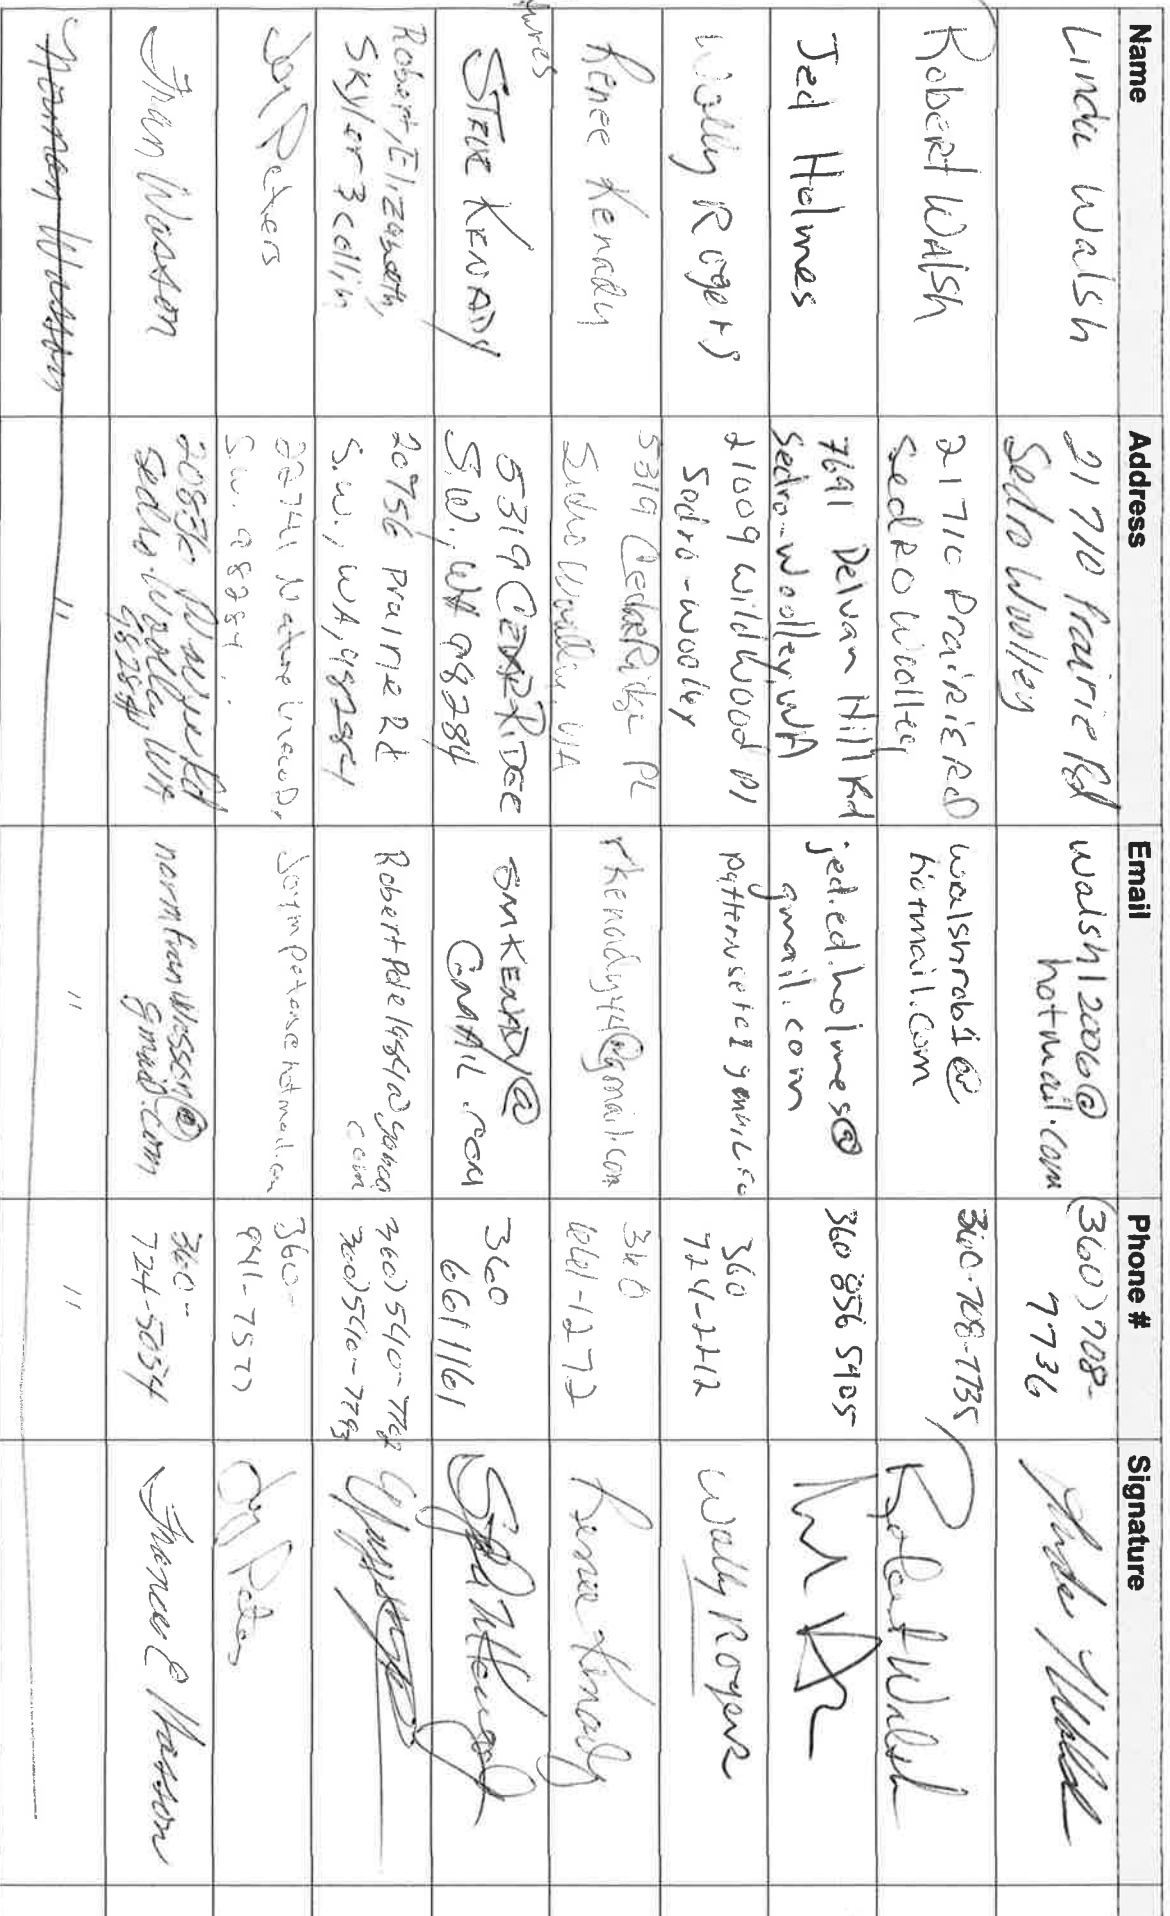 Name Address Email Phone # Signature
Linda Walsh
21710 Prairie Rd
Sedro Woolley
walsh12006@
hotmail.com
(360) 708-
7736
Robert Walsh
21710 Prairie Rd
Sedro Woolley
walshrob1@
hotmail.com
360-708-7735
Robert Walsh
Jed Holmes
7691 Delvan Hill Rd
Sedro-Woolley, WA
jed.ed.holmes@
gmail.com
360 856 5405
Wally Rogers
21009 Wildwood Pl
Sedro-Woolley
360
724-2212
Wally Rogers
Renee Kenady
5319 Cedar Ridge PL
Sedro Woolley, WA
rkenady44@gmail.com
360
661-1272
Renee Kenady
STEVE KENADY
5319 CEDAR RIDGE
S.W., WA 98284
SMKENADY@
GMAIL.COM
360
661 1161
Robert, Elizabeth,
Skyler & Collin
20756 Prairie Rd
S.W., WA, 98284
Joy Peters
S.W. 98284
joympeters@hotmail.com
360-
941-7577
Joy Peters
Fran Wasson
Sedro-Woolley, WA
98284
normfranwasson@
gmail.com
360-
724-5054
Frances Wasson
Norman Wasson
" " "